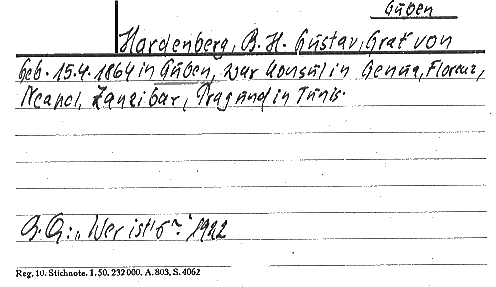 Guben
Hardenberg, B. H. Gustav, Graf von
Geb. 15.4.1864 in Guben, war Konsul in Genua, Florenz,
Neapel, Zanzibar, Prag und in Tunis.
B. Q.: „Wer ist's“? 1922
Reg. 10. Stichnote. I. 50. 232 000. A. 803. S. 4062